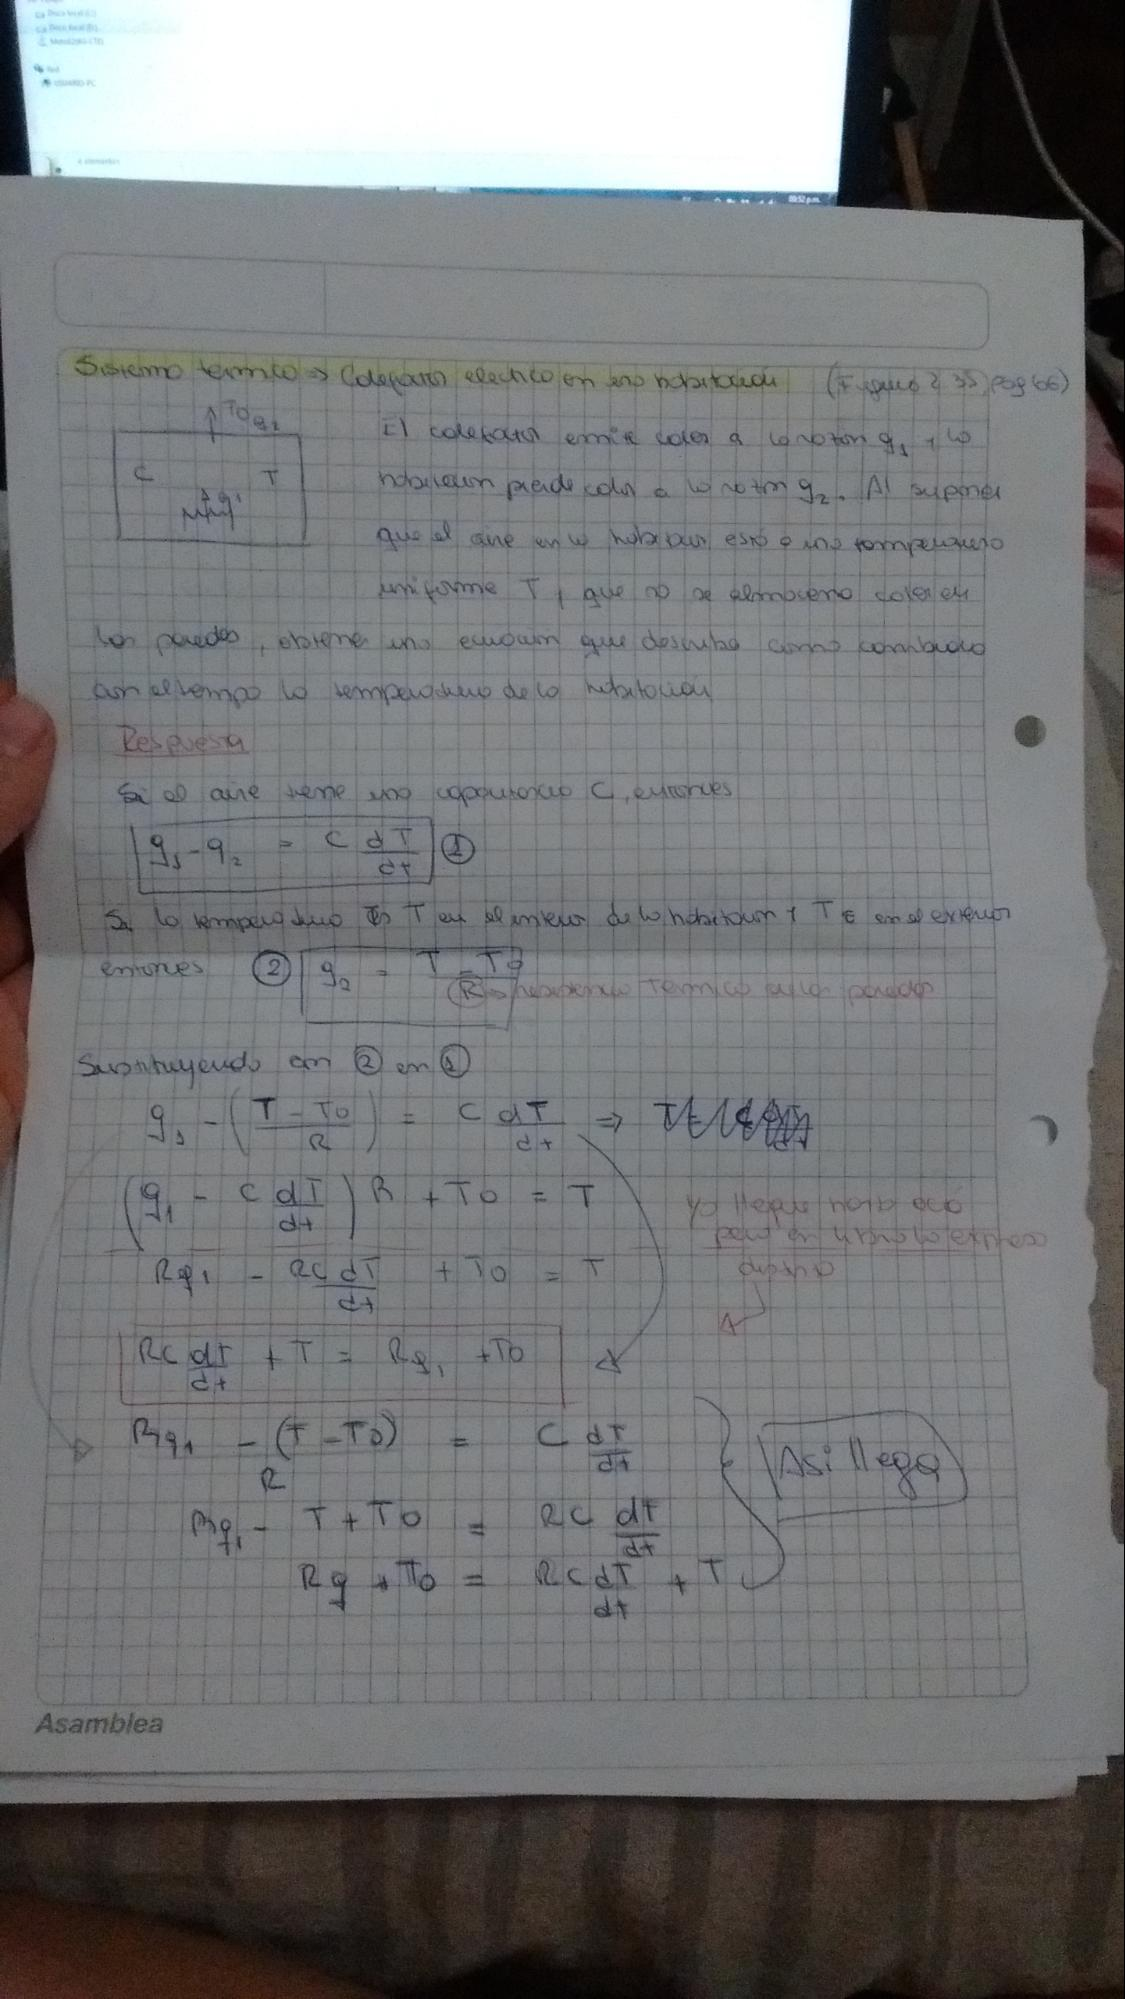 Disco local (C:)
Disco local (D:)
Red
USUARIO-PC
4 elementos
09:52 p.m.
Sistema termico => Calefactor electrico en una habitación (Figura 2.35, pag 66)
To q2
C T
q1
El calefactor emite calor a la razon q1 y la
habitacion pierde calor a la razon q2. Al suponer
que el aire en la habitacion está a una temperatura
uniforme T, que no se almacena calor en
las paredes, obtenga una ecuación que describa como cambiara
con el tempo la temperatura de la habitación
Respuesta
Si el aire tiene una capacitancia C, entonces
q1 - q2 = C dT/dt ①
Si la temperatura es T en el interior de la habitacion y To en el exterior
entonces ② q2 = T - To / R → resistencia termica de las paredes
Sustituyendo en ② en ①
q1 - (T - To / R) = C dT/dt =>
(q1 - C dT/dt) R + To = T
Yo llegue hasta acá
Rq1 - RC dT/dt + To = T
pero en el libro lo expresa
distinto
RC dT/dt + T = Rq1 + To
Rq1 - (T - To) / R = C dT/dt
Asi llega
Rq1 - T + To = RC dT/dt
Rq + To = RC dT/dt + T
Asamblea